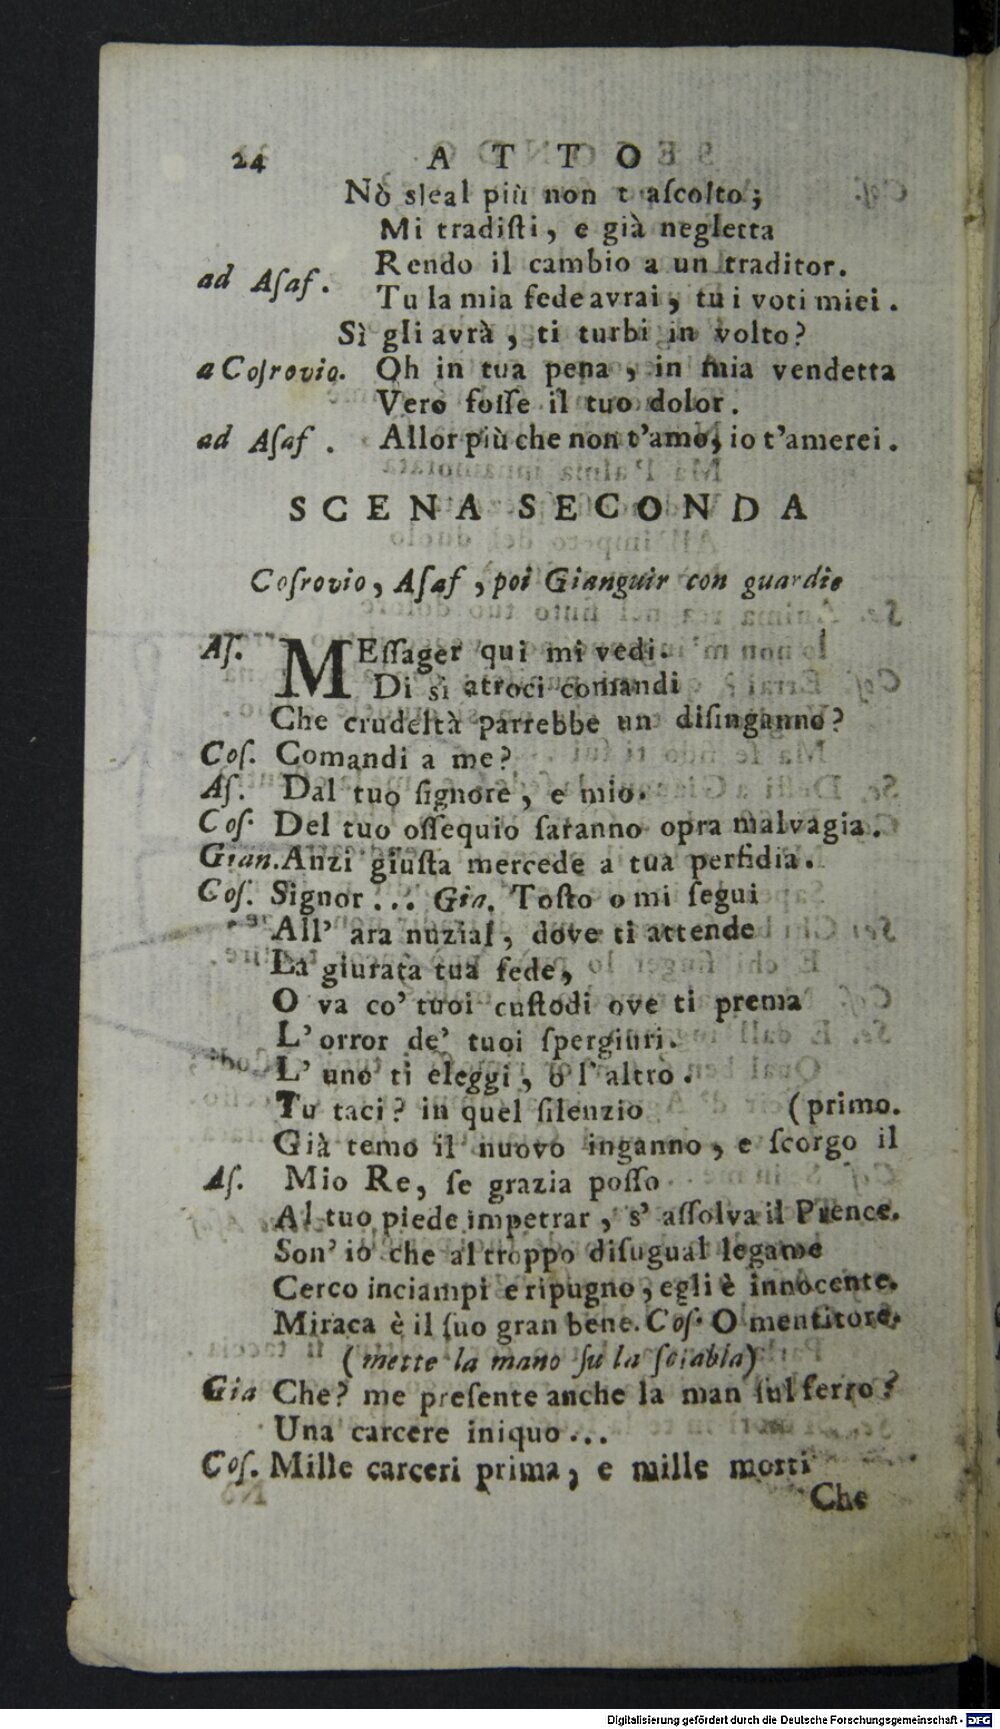 24 ATTO
Nò sleal più non t ascolto;
Mi tradisti, e già negletta
Rendo il cambio a un traditor.
ad Asaf. Tu la mia fede avrai, tu i voti miei.
Sì gli avrà, ti turbi in volto?
a Cosrovio. Oh in tua pena, in mia vendetta
Vero fosse il tuo dolor.
ad Asaf. Allor più che non t'amo, io t'amerei.
SCENA SECONDA
Cosrovio, Asaf, poi Gianguir con guardie
As. MEssager qui mi vedi.
Di sì atroci comandi
Che crudeltà parrebbe un disinganno?
Cos. Comandi a me?
As. Dal tuo signore, e mio.
Cos. Del tuo ossequio saranno opra malvagia.
Gian. Anzi giusta mercede a tua perfidia.
Cos. Signor... Gia. Tosto o mi segui
All' ara nuzial, dove ti attende
La giurata tua fede,
O va co' tuoi custodi ove ti prema
L' orror de' tuoi spergiuri.
L' uno ti eleggi, o l' altro.
Tu taci? in quel silenzio (primo.
Già temo il nuovo inganno, e scorgo il
As. Mio Re, se grazia posso
Al tuo piede impetrar, s' assolva il Prence.
Son' io che al troppo disugual legame
Cerco inciampi e ripugno, egli è innocente.
Miraca è il suo gran bene. Cos. O mentitore.
(mette la mano su la sciabla)
Gia Che? me presente anche la man sul ferro?
Una carcere iniquo...
Cos. Mille carceri prima, e mille morti
Che
Digitalisierung gefördert durch die Deutsche Forschungsgemeinschaft - DFG